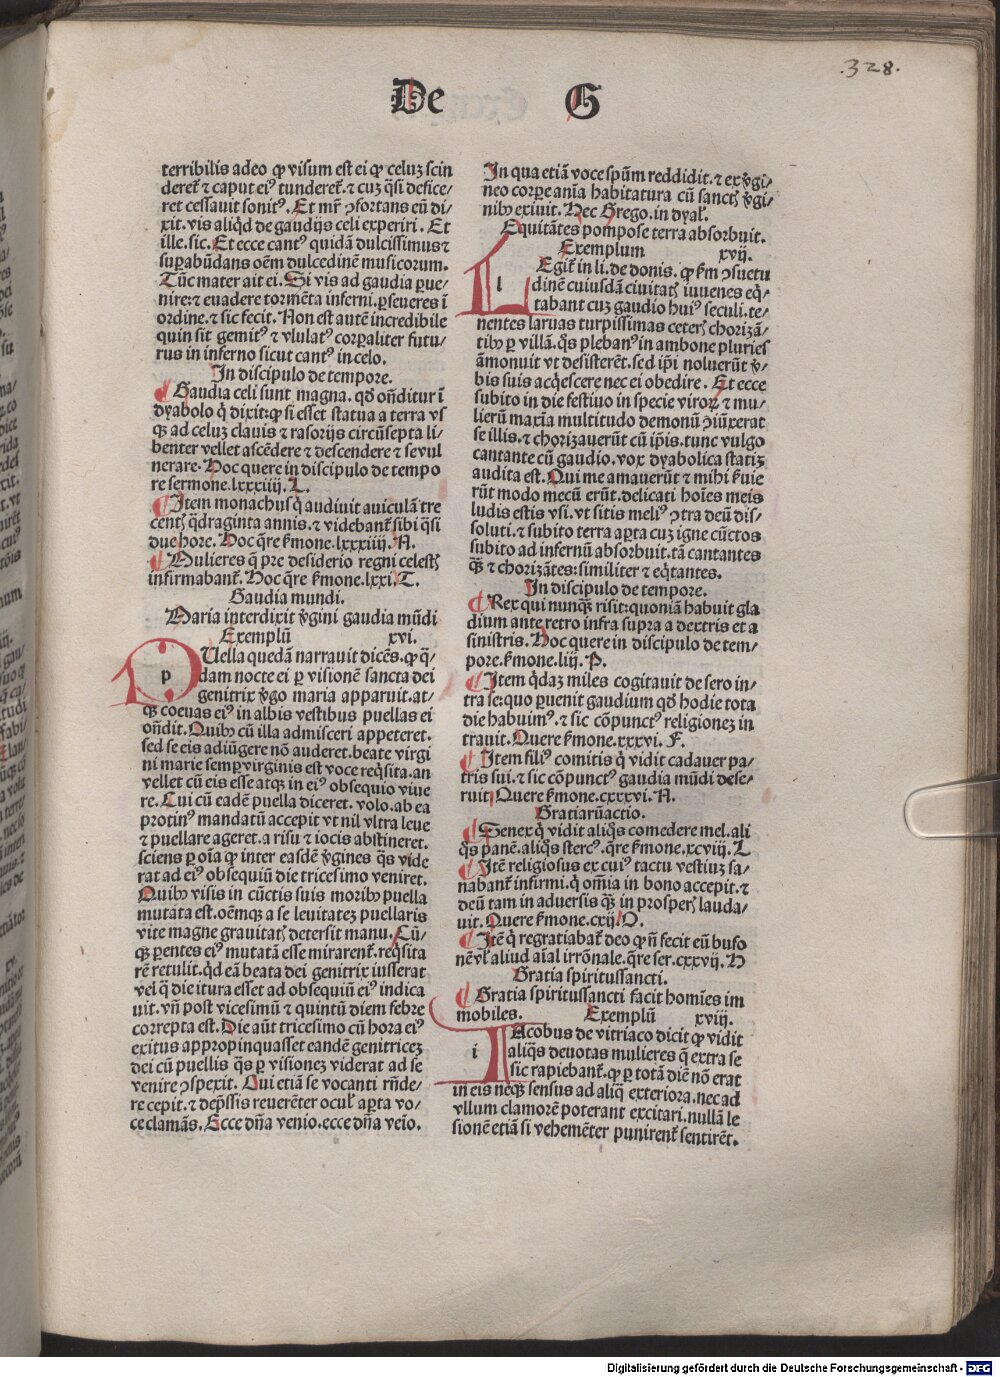 .328.
De G
terribilis adeo ꝙ visum est ei ꝙ celuꝫ scin
deret̃ ⁊ caput eiꝰ tunderet̃. ⁊ cuꝫ q̃si defice/
ret cessauit sonitꝰ. Et mr̃ ꝯfortans eũ di/
xit. vis aliqͥd de gaudijs celi experiri. Et
ille. sic. Et ecce cantꝰ quidã dulcissimus ⁊
suꝑabũdans oẽm dulcedinẽ musicorum.
Tũc mater ait ei. Si vis ad gaudia ꝑue/
nire: ⁊ euadere tormẽta inferni. ꝑseueres ĩ
ordine. ⁊ sic fecit. Non est autẽ incredibile
quin sit gemitꝰ ⁊ vlulatꝰ corꝑaliter futu/
rus in inferno sicut cantꝰ in celo.
In discipulo de tempore.
¶ Gaudia celi sunt magna. qḋ oñditur ĩ
dyabolo qͥ dixit: ꝙ si esset statua a terra vs
qꝫ ad celuꝫ clauis ⁊ rasorijs circũsepta li/
benter vellet ascẽdere ⁊ descendere ⁊ se vul
nerare. Hoc quere in discipulo de tempo
re sermone. lxxxiiij. L.
¶ Item monachus qͥ audiuit auiculã tre
centꝭ qͣdraginta annis. ⁊ videbant̃ sibi q̃si
due hore. Hoc q̃re ẜmone. lxxxiiij. N.
¶ Mulieres q̃ pre desiderio regni celestꝭ
infirmabant̃. Hoc q̃re ẜmone. lxxi. T.
Gaudia mundi.
Maria interdixit v̾gini gaudia mũdi
Exemplũ xvi.
p Uella quedã narrauit dicẽs. ꝙ q̃/
dam nocte ei ꝑ visionẽ sancta dei
genitrix v̾go maria apparuit. at/
qꝫ coeuas eiꝰ in albis vestibus puellas ei
oñdit. Quibꝰ cũ illa admisceri appeteret.
sed se eis adiũgere nõ auderet. beate virgi
ni marie semꝑ virginis est voce reqͥsita. an
vellet cũ eis esse atqꝫ in eiꝰ obsequio viue
re. Cui cũ eadẽ puella diceret. volo. ab ea
protinꝰ mandatũ accepit vt nil vltra leue
⁊ puellare ageret. a risu ⁊ iocis abstineret.
sciens ꝑ oĩa ꝙ inter easdẽ v̾gines q̃s vide
rat ad eiꝰ obsequiũ die tricesimo veniret.
Quibꝰ visis in cũctis suis moribꝰ puella
mutata est. oẽmqꝫ a se leuitateꝫ puellaris
vite magne grauitatꝭ detersit manu. Cũ/
qꝫ ꝑentes eiꝰ mutatã esse mirarent̃. reqͥsita
rẽ retulit. qͥd eã beata dei genitrix iusserat
vel q̃ die itura esset ad obsequiũ eiꝰ indica
uit. vñ post vicesimũ ⁊ quintũ diem febre
correpta est. Die aũt tricesimo cũ hora eiꝰ
exitus appropinquasset eandẽ genitriceꝫ
dei cũ puellis q̃s ꝑ visioneꝫ viderat ad se
venire ꝯspexit. Qui etiã se vocanti rñde/
re cepit. ⁊ dep̃ssis reuerẽter oculꝭ aꝑta vo/
ce clamãs. Ecce dña venio. ecce dña veĩo.
In qua etiã voce sp̃um reddidit. ⁊ ex v̾gi/
neo corꝑe anĩa habitatura cũ sanctꝭ v̾gi/
nibꝰ exiuit. Hec Grego. in dyal̃.
Equitãtes pompose terra absorbuit.
Exemplum xvij.
l Egit̃ in li. de donis. ꝙ ẜm ꝯsuetu
dinẽ cuiusdã ciuitatꝭ iuuenes eqͥ/
tabant cuꝫ gaudio huiꝰ seculi. te/
nentes laruas turpissimas ceterꝭ chorizã/
tibꝰ ꝑ villã. q̃s plebanꝰ in ambone pluries
ãmonuit vt desisterẽt. sed ip̃i noluerũt v̾/
bis suis acq̃escere nec ei obedire. Et ecce
subito in die festiuo in specie viroꝝ ⁊ mu/
lierũ maxĩa multitudo demonũ ꝯiũxerat
se illis. ⁊ chorizauerũt cũ ip̃is. tunc vulgo
cantante cũ gaudio. vox dyabolica statiꝫ
audita est. Qui me amauerũt ⁊ mihi ẜuie
rũt modo mecũ erũt. delicati hoĩes meis
ludis estis vsi. vt sitis meliꝰ ꝯtra deũ dis/
soluti. ⁊ subito terra aꝑta cuꝫ igne cũctos
subito ad infernũ absorbuit. tã cantantes
qꝫ̃ ⁊ chorizãtes: similiter ⁊ eqͥtantes.
In discipulo de tempore.
¶ Rex qui nunqꝫ̃ risit: quoniã habuit gla
dium ante retro infra supra a dextris et a
sinistris. Hoc quere in discipulo de tem/
pore. ẜmone. liij. P.
¶ Item qͥdaꝫ miles cogitauit de sero in/
tra se: quo ꝑuenit gaudium qḋ hodie tota
die habuimꝰ. ⁊ sic cõpunctꝰ religioneꝫ in
trauit. Quere ẜmone. xxxvi. F.
¶ Item filiꝰ comitis qͥ vidit cadauer pa/
tris sui. ⁊ sic cõpunctꝰ gaudia mũdi dese/
ruit. Quere ẜmone. cxxxvi. N.
Gratiarũactio.
¶ Senex qͥ vidit aliq̃s comedere mel. ali
q̃s panẽ. aliq̃s stercꝰ. q̃re ẜmone. xcviij. L
¶ Itẽ religiosus ex cuiꝰ tactu vestiuꝫ sa/
nabant̃ infirmi. qͥ om̃ia in bono accepit. ⁊
deũ tam in aduersis qꝫ̃ in prosperꝭ lauda/
uit. Quere ẜmone. cxij. O.
¶ Itẽ qͥ regratiabat̃ deo ꝙ ñ fecit eũ bufo
nẽ vl̃ aliud aĩal irrõnale. q̃re ser. cxxvij. H
Gratia spiritussancti.
¶ Gratia spiritussancti facit homĩes im
mobiles. Exemplũ xviij.
i Acobus de vitriaco dicit ꝙ vidit
aliq̃s deuotas mulieres q̃ extra se
sic rapiebant̃. ꝙ ꝑ totã diẽ nõ erat
in eis neqꝫ sensus ad aliq̃ exteriora. nec ad
vllum clamorẽ poterant excitari. nullã le
sionẽ etiã si vehemẽter punirent̃ sentirẽt.
Digitalisierung gefördert durch die Deutsche Forschungsgemeinschaft - DFG